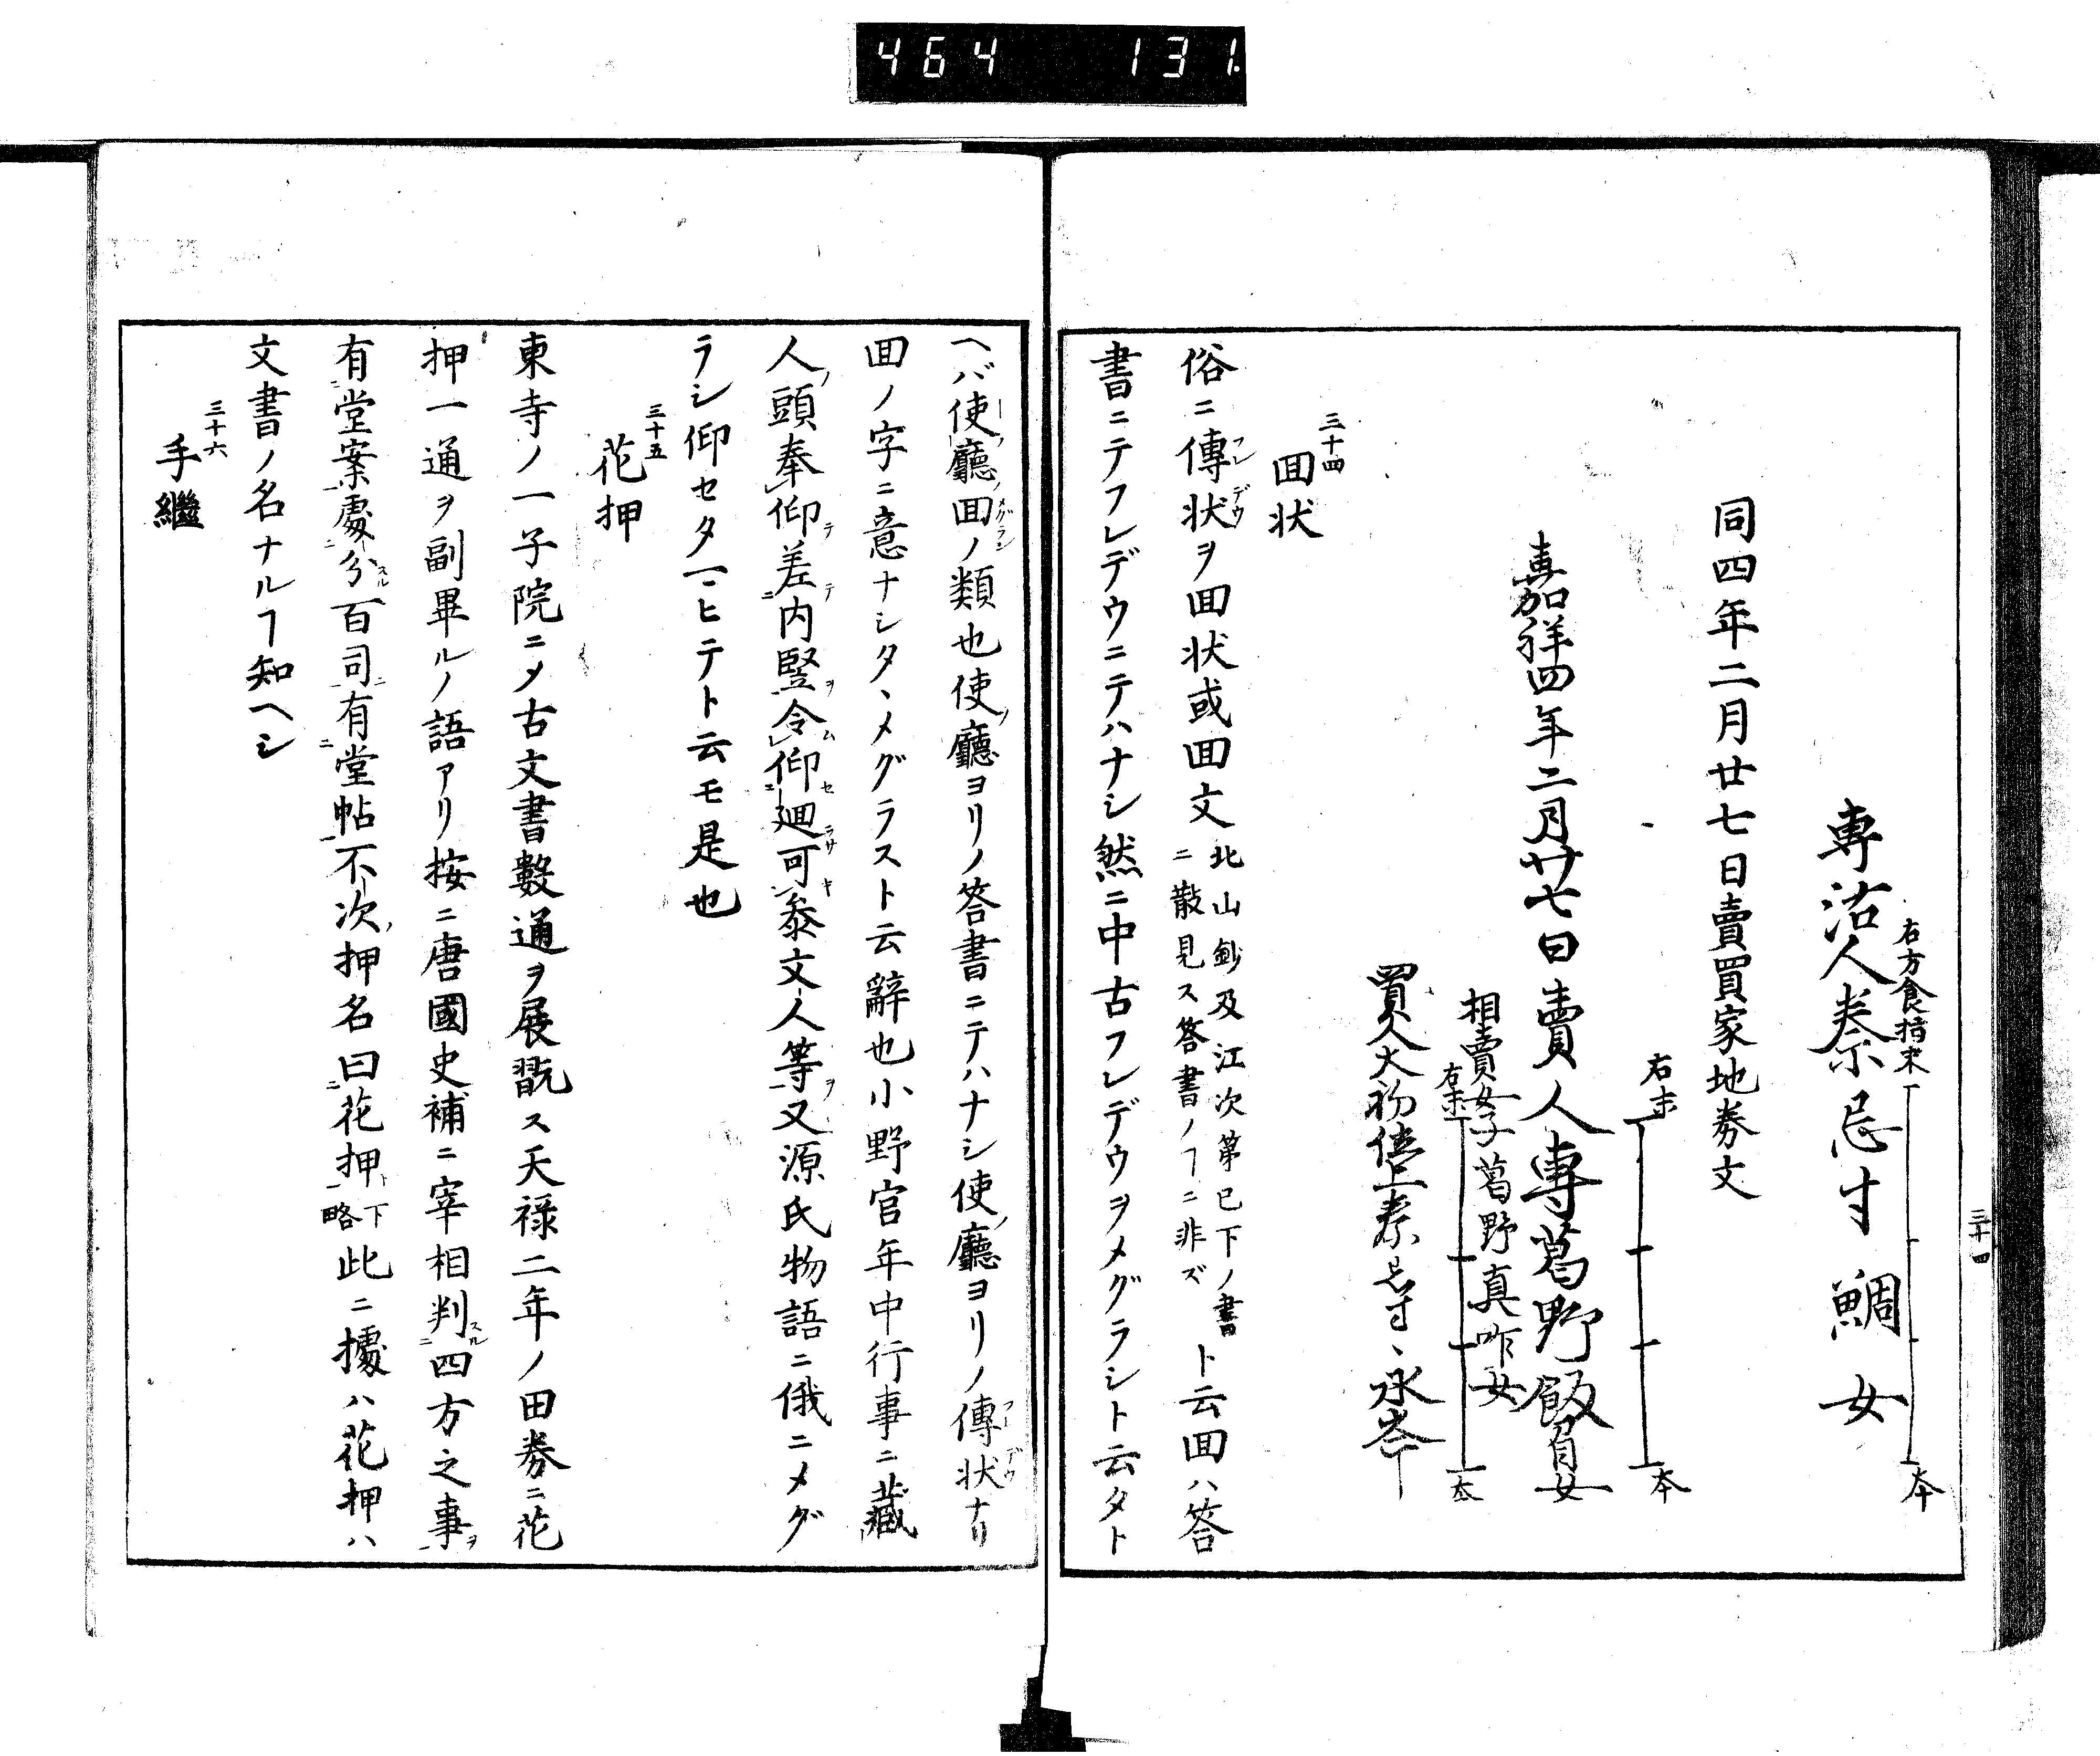 464 131.
右方食指末
本
專沽人秦忌寸鯛女
同四年二月廿七日賣買家地券文
右末
本
嘉祥四年二月廿七日賣人專葛野飯刀自女
相賣女子葛野真咋女
右末
本
買人大初位上秦忌寸永岑
三十四
三十四
囬状
俗ニ傳状ヲ囬状或囬文
北山鈔及江次第已下ノ書
ニ散見ス答書ノヿニ非ズ
ト云囬ハ答
書ニテフレデウニテハナシ然ニ中古フレデウヲメグラシト云タト
ヘバ使廳囬ノ類也使廳ヨリノ答書ニテハナシ使廳ヨリノ傳状ナリ
囬ノ字ニ意ナシタヽメグラスト云辭也小野宮年中行事ニ藏
人頭奉仰差内竪令仰廻可參文人等又源氏物語ニ俄ニメグ
ラシ仰セタマヒテト云モ是也
三十五
花押
東寺ノ一子院ニメ古文書數通ヲ展翫ス天禄二年ノ田券ニ花
押一通ヲ副畢ルノ語アリ按ニ唐國史補ニ宰相判四方之事
有堂案處分百司有堂帖不次押名曰花押
下略
此ニ據ハ花押ハ
文書ノ名ナルヿ知ヘシ
三十六
手繼